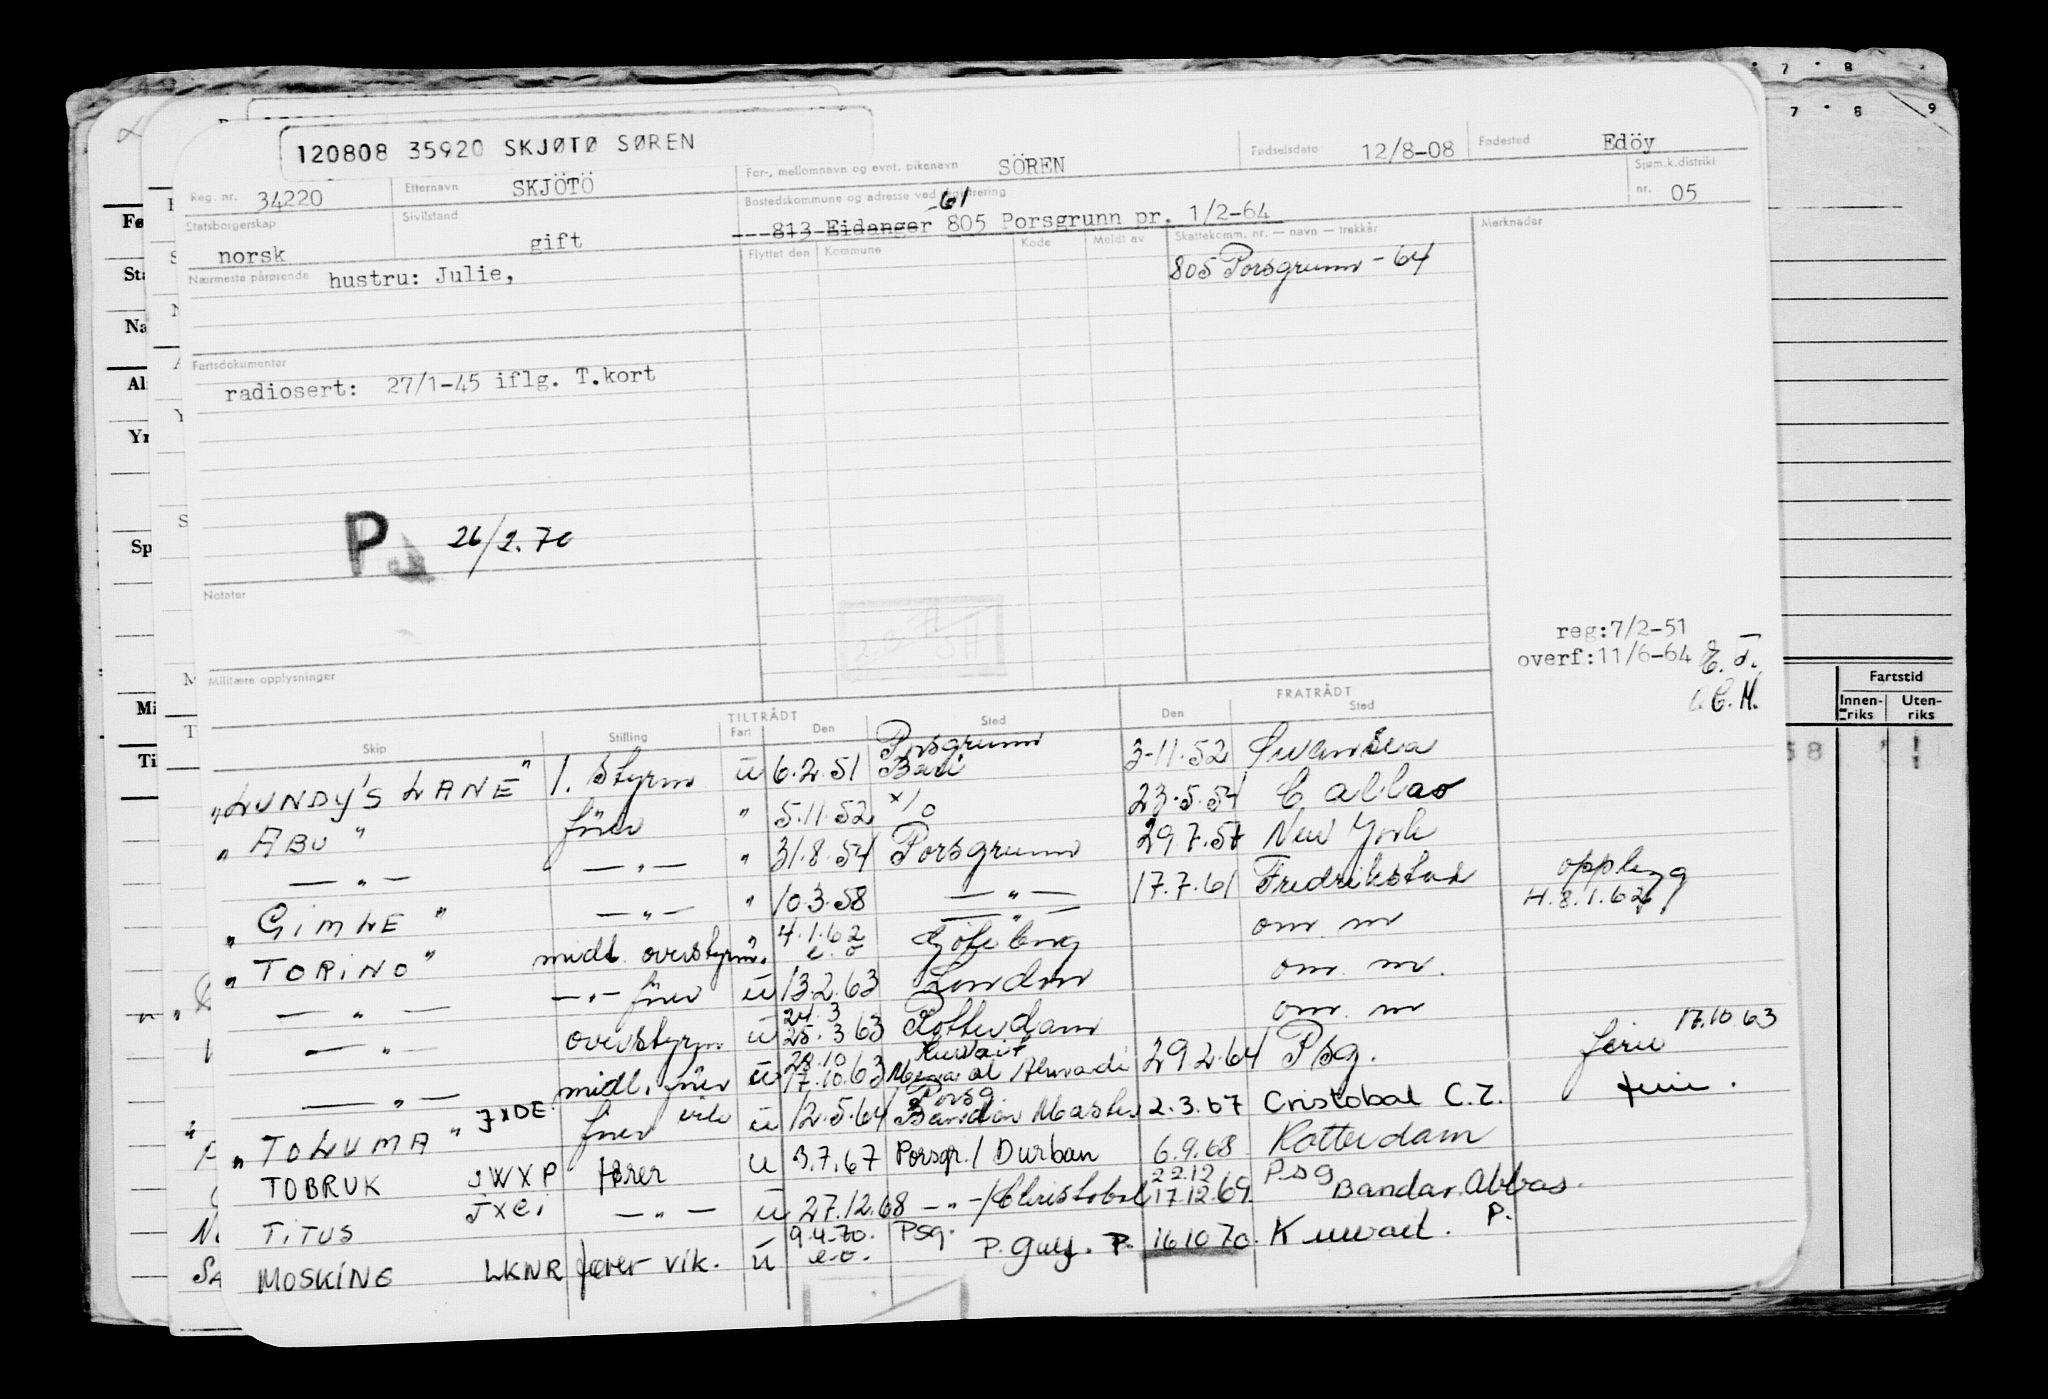 120808 35920 SKJØTØ SØREN
Reg. nr. 34220 Etternavn SKJÖTÖ For-, mellomnavn og evnt. pikenavn SÖREN Fødselsdato 12/8-08 Fødested Edöy
Statsborgerskap norsk Sivilstand gift Bostedskommune og adresse ved registrering -61 Sjøm.k.distrikt nr. 05
813 Eidanger 805 Porsgrunn pr. 1/2-64
Nærmeste pårørende hustru: Julie,
Flyttet den Kommune Kode Meldt av Skattekomm. nr. — navn — trekkår Merknader
805 Porsgrunn - 64
Fartsdokumenter
radiosert: 27/1-45 iflg. T.kort
P 26/2.70
Notater
reg:7/2-51
overf:11/6-64
Militære opplysninger
TILTRÅDT FRATRÅDT
Skip Stilling Fart Den Sted Den Sted
"LUNDY'S LANE" 1. styrm ū 6.2.51 Porsgrunn Bari 3-11.52 Swansea
"ABU" förer " 5.11.52 x/o 23.5.54 Callao
— " — — " — " 31.8.54 Porsgrunn 29.7.57 New York
"GIMLE" — " — " 10.3.58 — " — 17.7.61 Fredrikstad opplegg
"TORINO" midl. overstyrm. " 4.1.62 e.o Göteborg om. m H.8.1.62
— " — — " — förer ū 13.2.63 London om. m.
— " — overstyrm ū 24.3 25.3.63 Rotterdam om. m
— " — midl. förer ū 28.10 17.10.63 Kuwait 29.2.64 Psg. ferie 17.10.63
"TOLUMA" JXDE förer ū 12.5.64 Porsg. 2.3.67 Cristobal C.Z. ferie.
TOBRUK JWXP fører ū 3.7.67 Porsgr./ Durban 6.9.68 Rotterdam
TITUS JXCI — " — ū 27.12.68 — " — / Christobal 22.12 17.12.69. Psg Bandar. Abbas.
MOSKING LKNR fører vik. ū 9.4.70. e.o. Psg. P. Gulf. P. 16.10.70. Kuwait. P.
Fartstid
Innenriks Utenriks